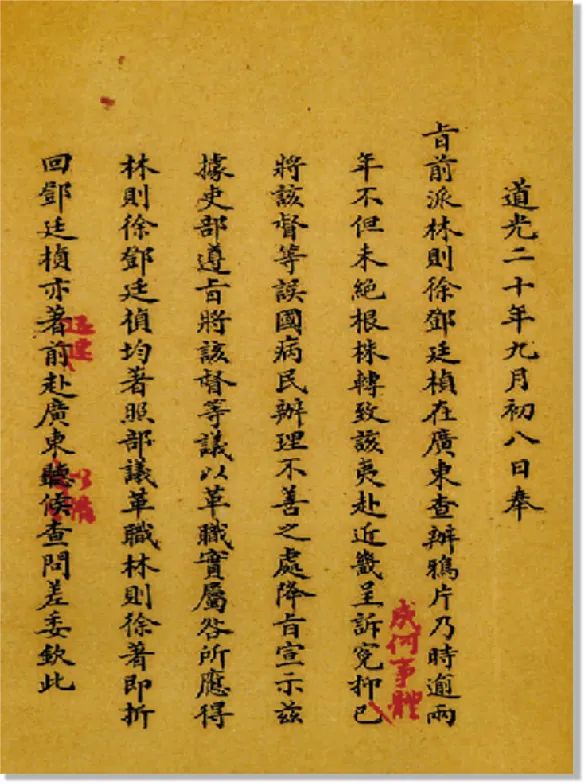 道光二十年九月初八日奉
旨前派林則徐鄧廷楨在廣東查辦鴉片乃時逾兩
年不但未絕根株轉致該夷赴近畿呈訴寃抑已
成何事體
將該督等誤國病民辦理不善之處降旨宣示茲
據吏部遵旨將該督等議以革職實屬咎所應得
林則徐鄧廷楨均著照部議革職林則徐著即折
回鄧廷楨亦著前赴廣東聽候查問差委欽此
以備